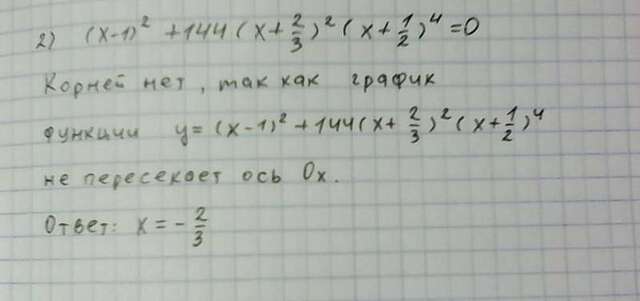 2) (x-1)² + 144 (x + 2/3)² (x + 1/2)⁴ = 0
Корней нет, так как график
функции y = (x-1)² + 144 (x + 2/3)² (x + 1/2)⁴
не пересекает ось Ox.
Ответ: x = - 2/3